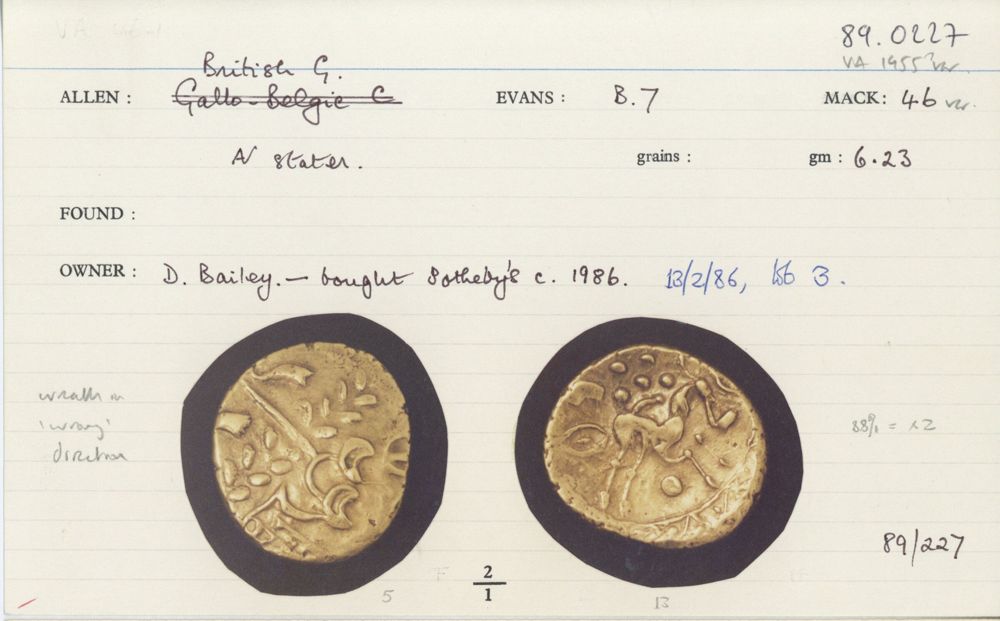 89.0227
VA 1955? var.
British G.
ALLEN : Gallo-Belgic C EVANS : B.7 MACK: 46 var.
N stater. grains : gm : 6.23
FOUND :
OWNER : D. Bailey. — bought Sotheby's c. 1986. 13/2/86, lot 3.
wreath in
'wrong'
direction
88% = x2
89/227
2
1
5
13